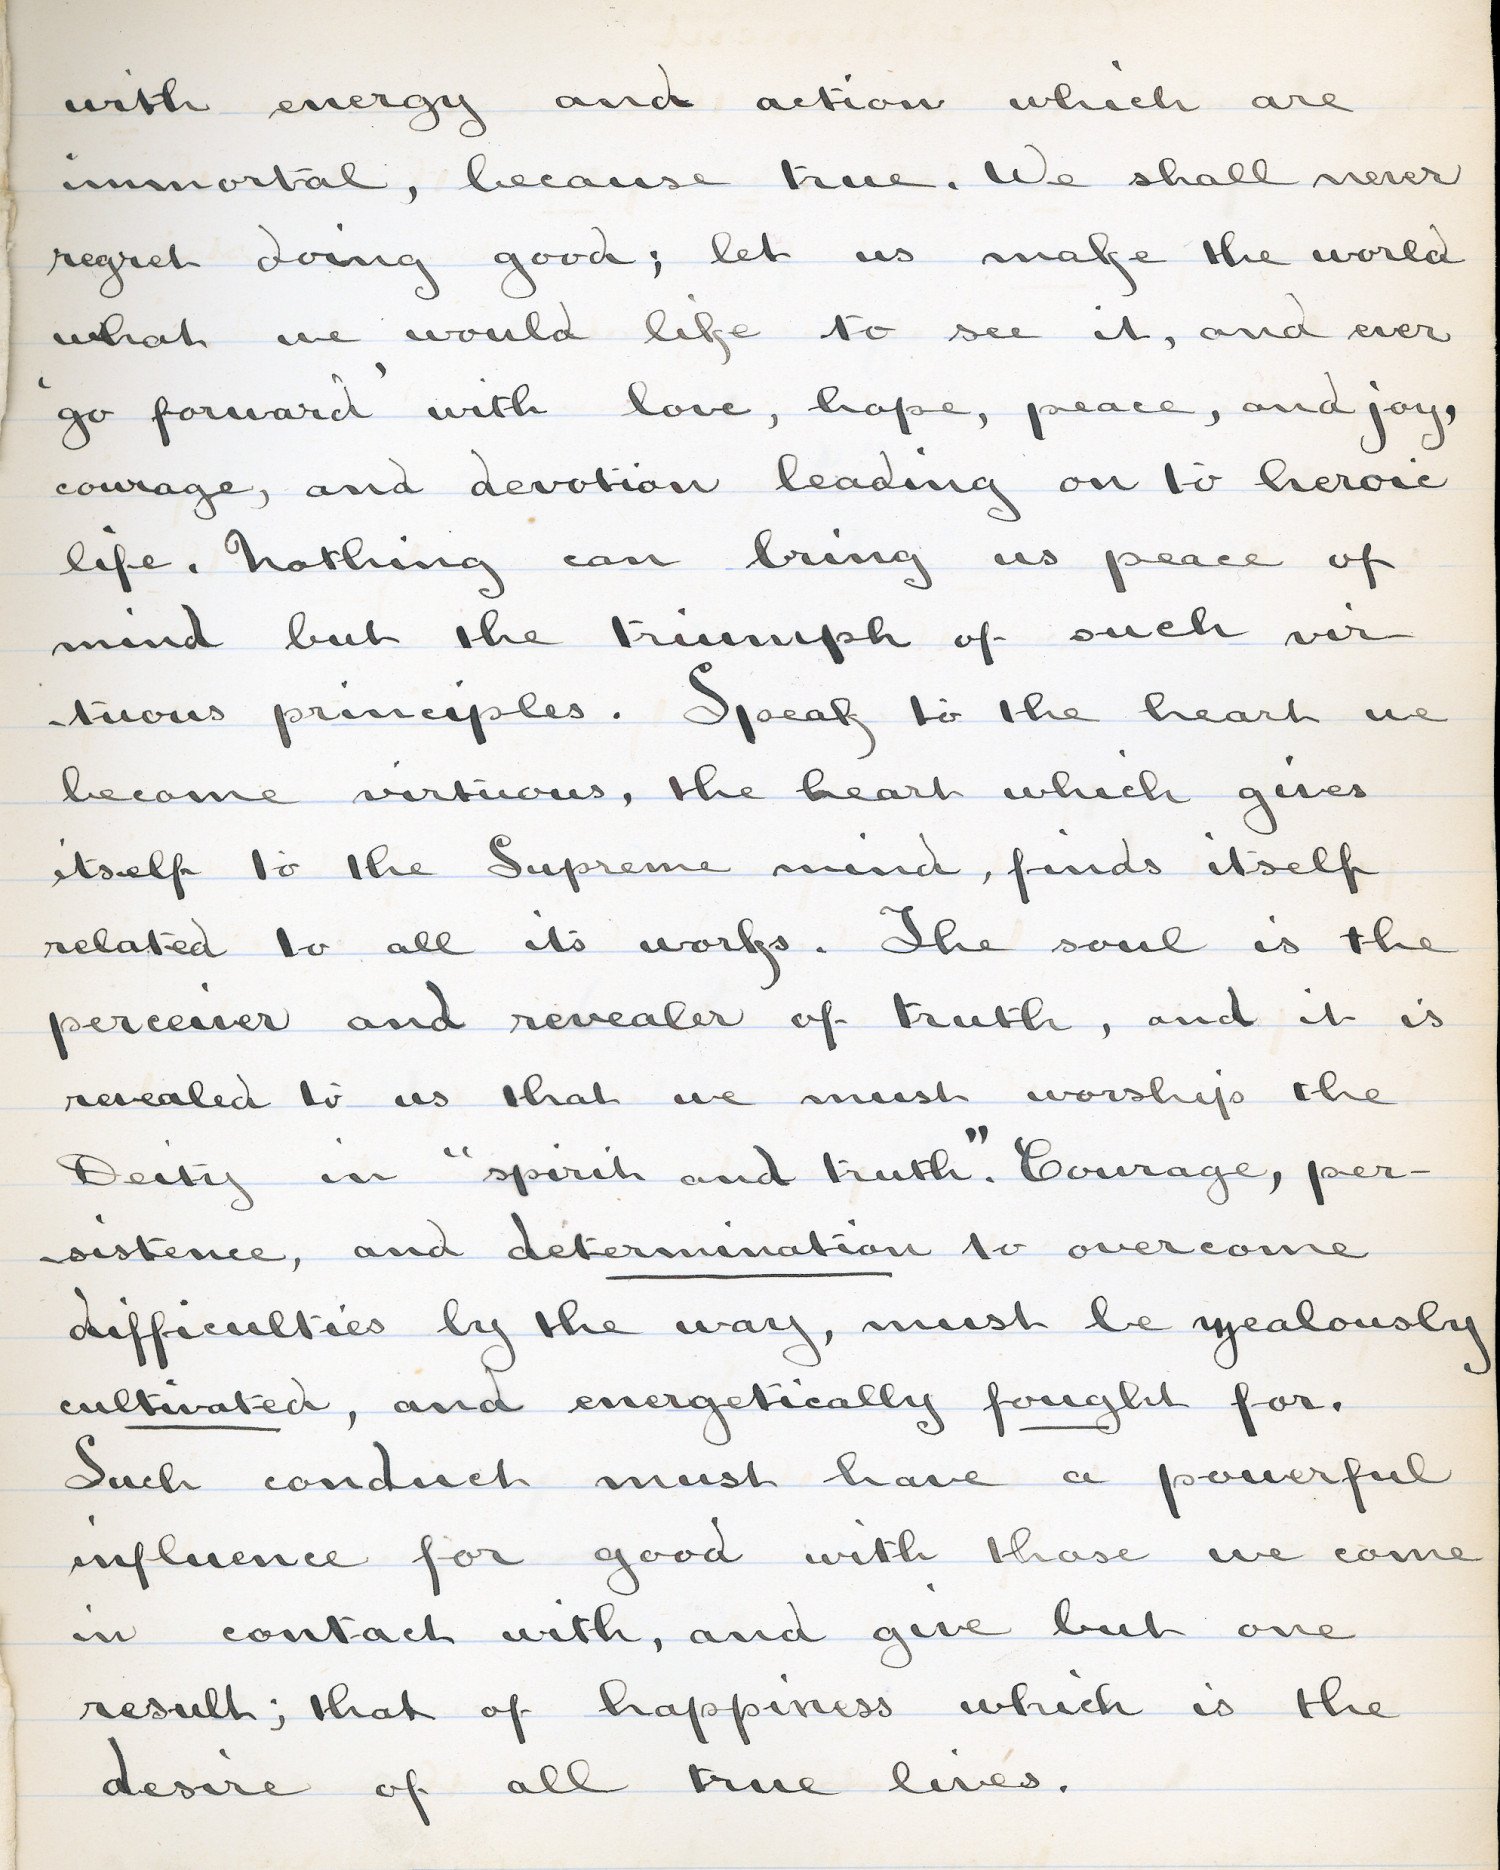 with energy and action which are
immortal, because true. We shall never
regret doing good; let us make the world
what we would like to see it, and ever
'go forward' with love, hope, peace, and joy,
courage, and devotion leading on to heroic
life. Nothing can bring us peace of
mind but the triumph of such vir-
-tuous principles. Speak to the heart we
become virtuous, the heart which gives
itself to the Supreme mind, finds itself
related to all its works. The soul is the
perceiver and revealer of truth, and it is
revealed to us that we must worship the
Deity in "spirit and truth". Courage, per-
-sistence, and determination to overcome
difficulties by the way, must be zealously
cultivated, and energetically fought for.
Such conduct must have a powerful
influence for good with those we come
in contact with, and give but one
result; that of happiness which is the
desire of all true lives.